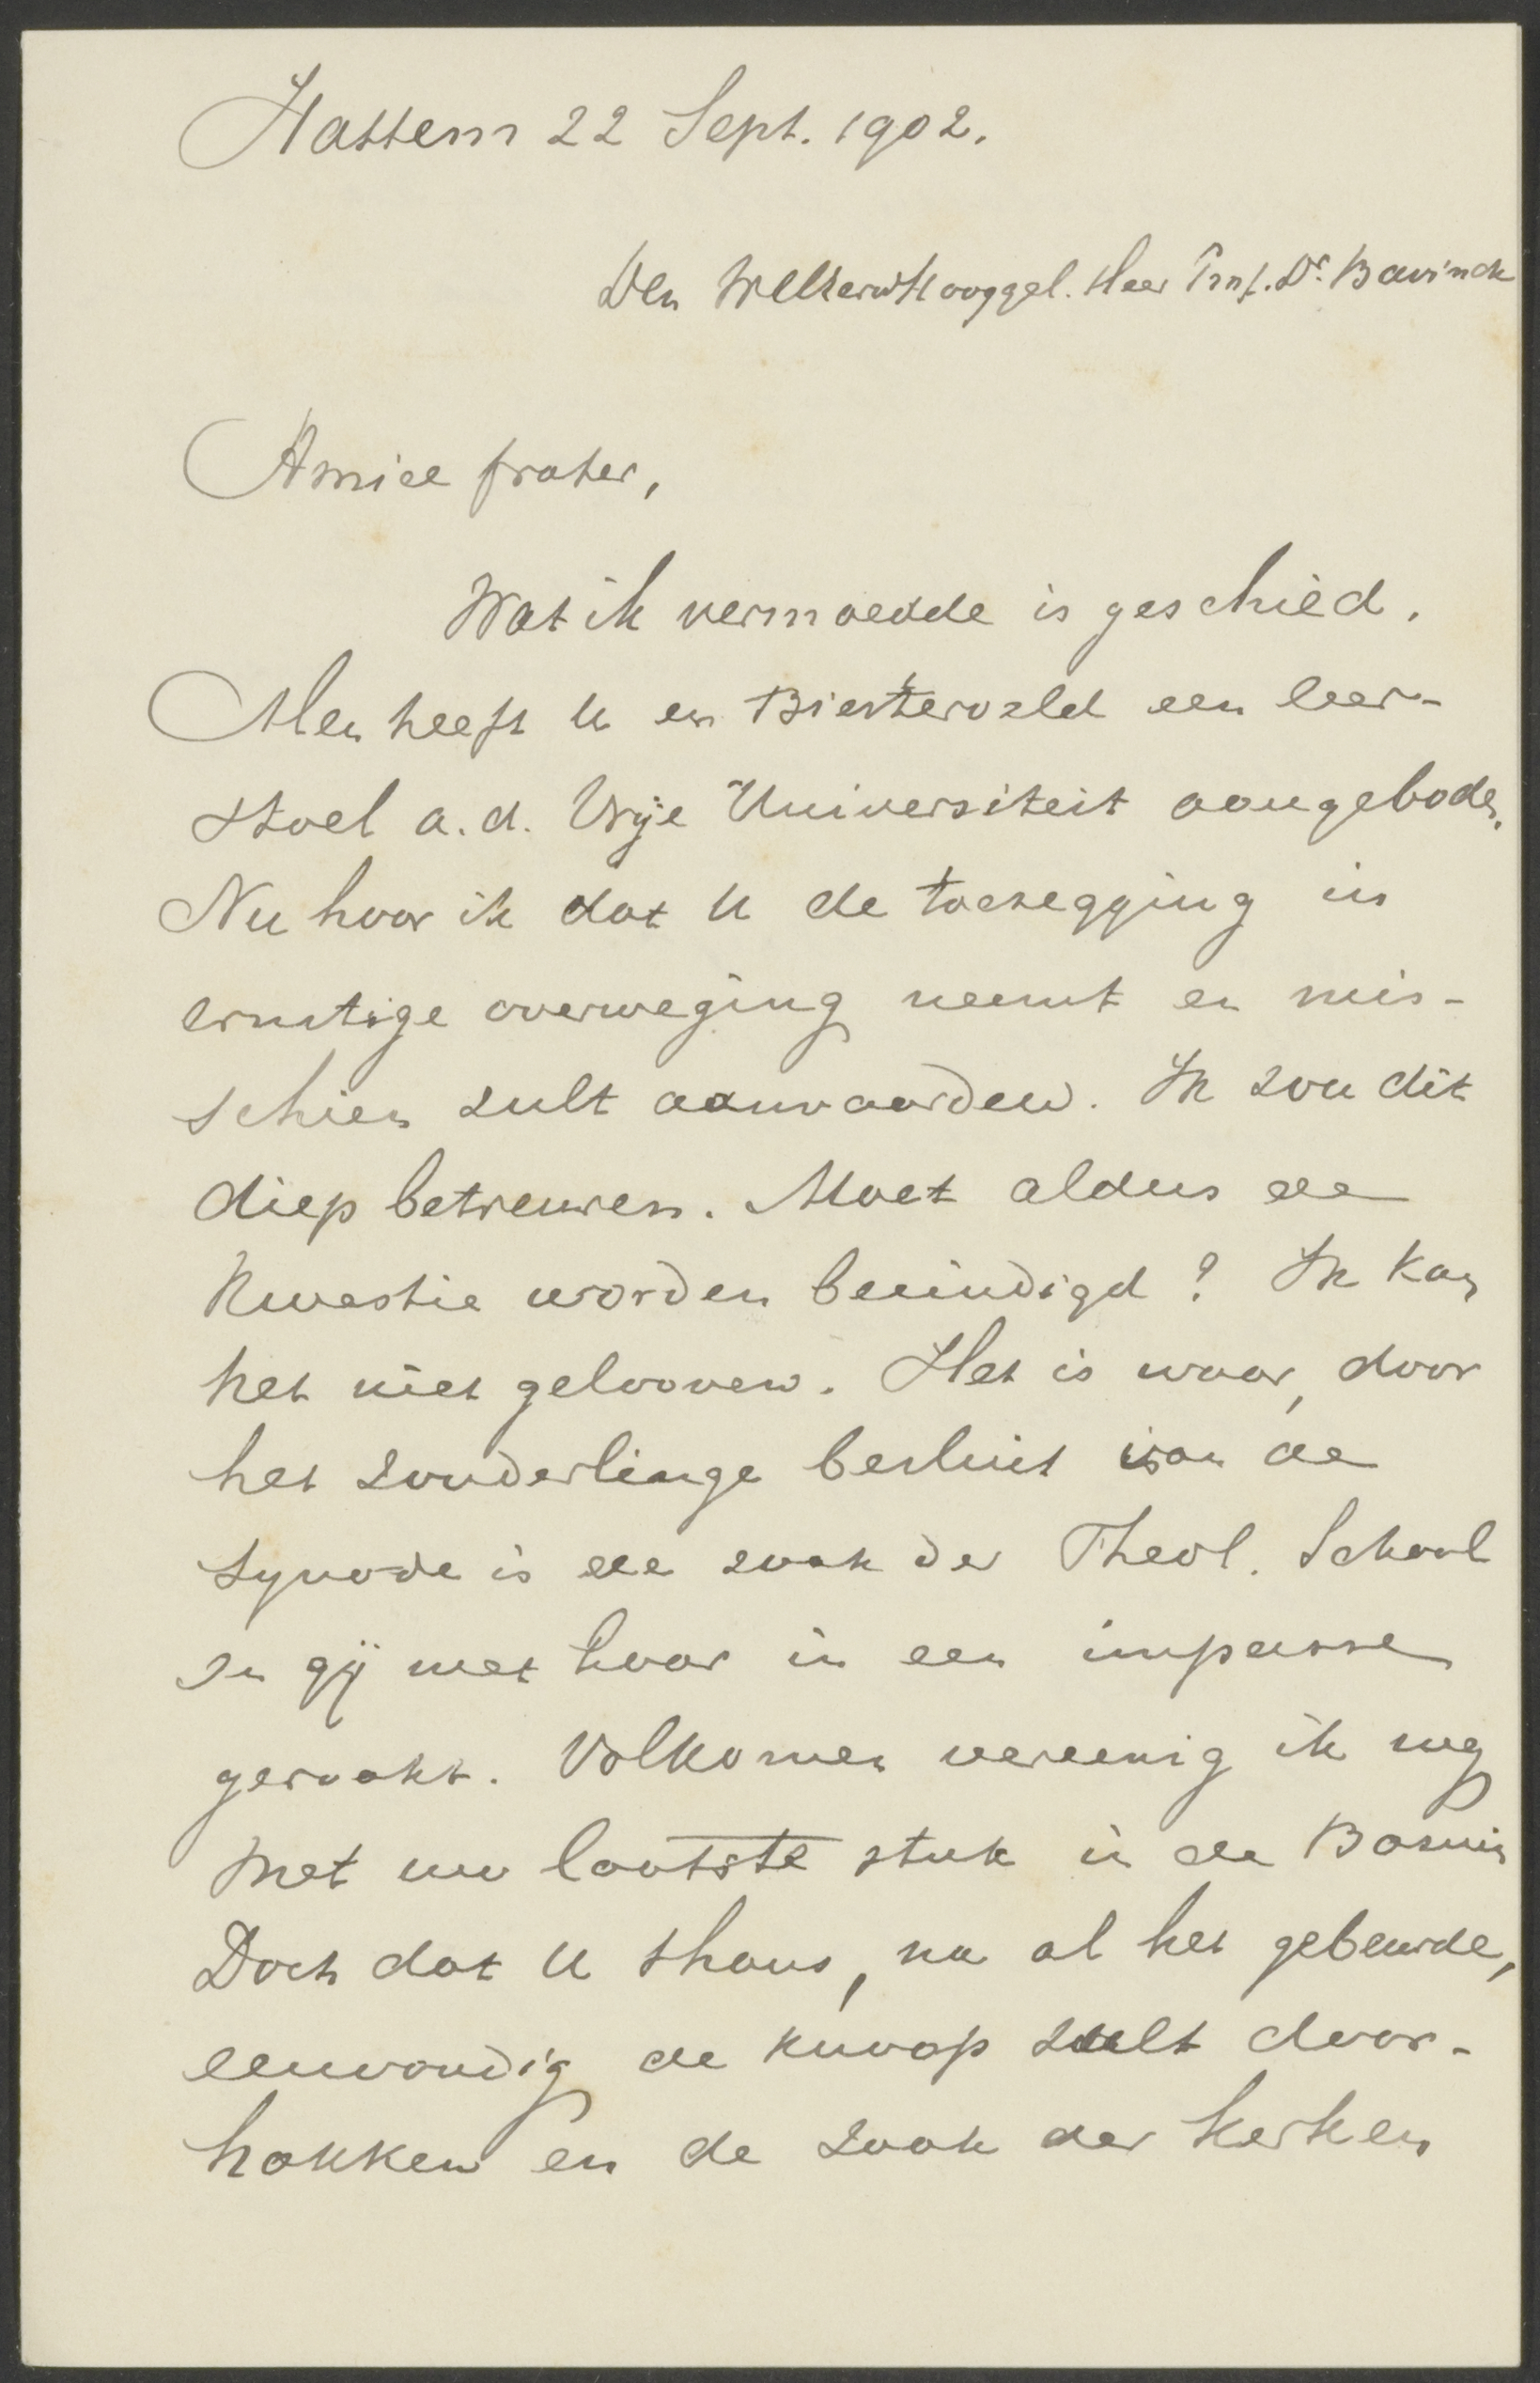 Hattem 22 Sept. 1902.
Den WelEerwHooggel. Heer Prof. Dr. Bavinck
Amice frater,
Wat ik vermoedde is geschied.
Men heeft U en Biesterveld een leer-
stoel a.d. Vrije Universiteit aangeboden.
Nu hoor ik dat U de toezegging in
ernstige overweging neemt en mis-
schien zult aanvaarden. Ik zou dit
diep betreuren. Moet aldus de
Kwestie worden beëindigd? Ik kan
het niet gelooven. Het is waar, door
het zonderlinge besluit van de
Synode is de zaak der Theol. School
en gij met haar in een impasse
geraakt. Volkomen vereenig ik mij
met uw laatste stuk in de Bazuin
Doch dat U thans, na al het gebeurde,
eenvoudig de knoop zult door-
hakken en de zaak der Kerken